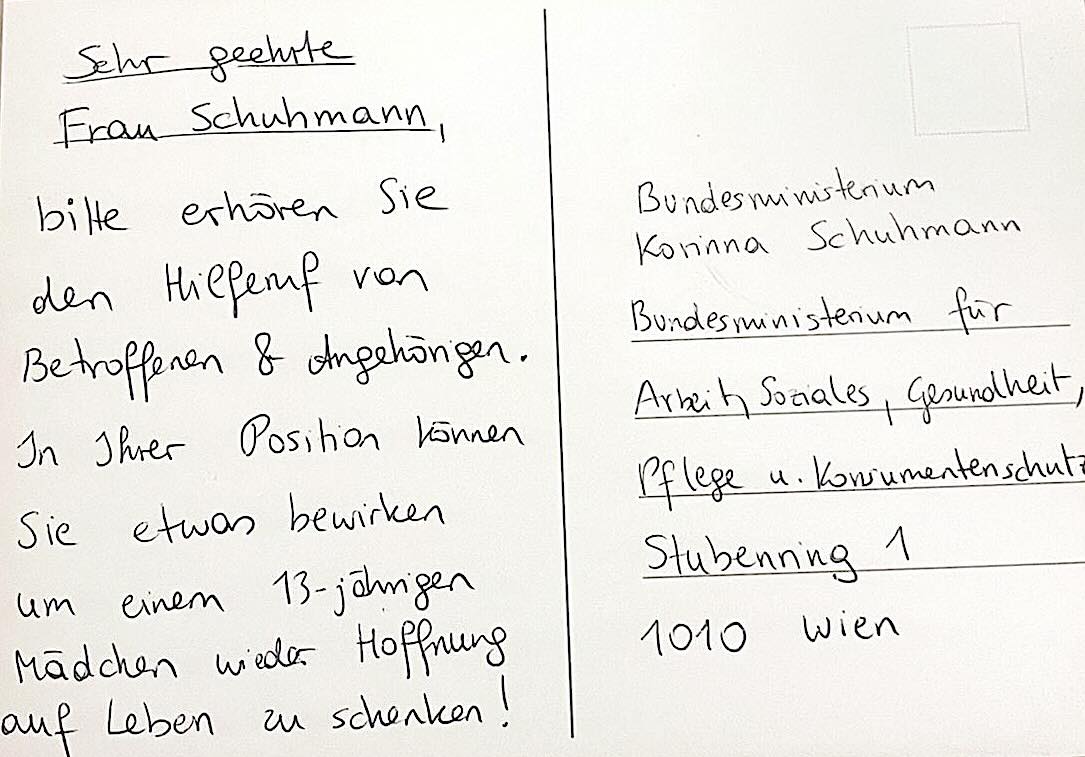 Sehr geehrte
Frau Schuhmann,
bitte erhören Sie
den Hilferuf von
Betroffenen & Angehörigen.
In Ihrer Position können
Sie etwas bewirken
um einem 13-jährigen
Mädchen wieder Hoffnung
auf Leben zu schenken!
Bundesministerium
Korinna Schuhmann
Bundesministerium für
Arbeit, Soziales, Gesundheit,
Pflege u. Konsumentenschutz
Stubenring 1
1010 Wien